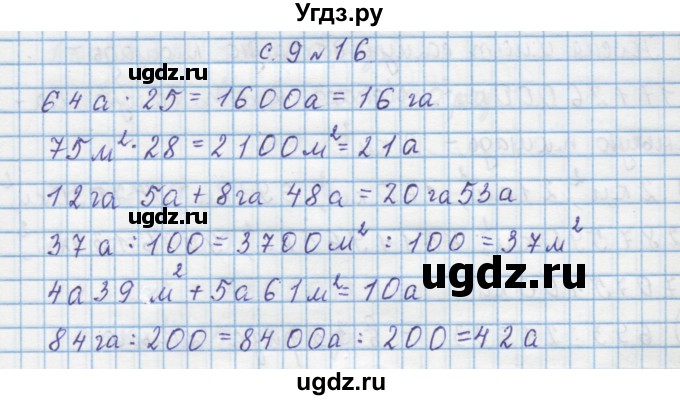 Угдз.ру
с. 9 № 16
64а · 25 = 1600а = 16 га
ugdz.ru
75м² · 28 = 2100м² = 21а
12га 5а + 8га 48а = 20га53а
ugdz.ru
37а : 100 = 3700м² : 100 = 37м²
ugdz.ru
4а39 м² + 5а61м² = 10а
84га : 200 = 8400а : 200 = 42а
ugdz.ru
ugdz.ru